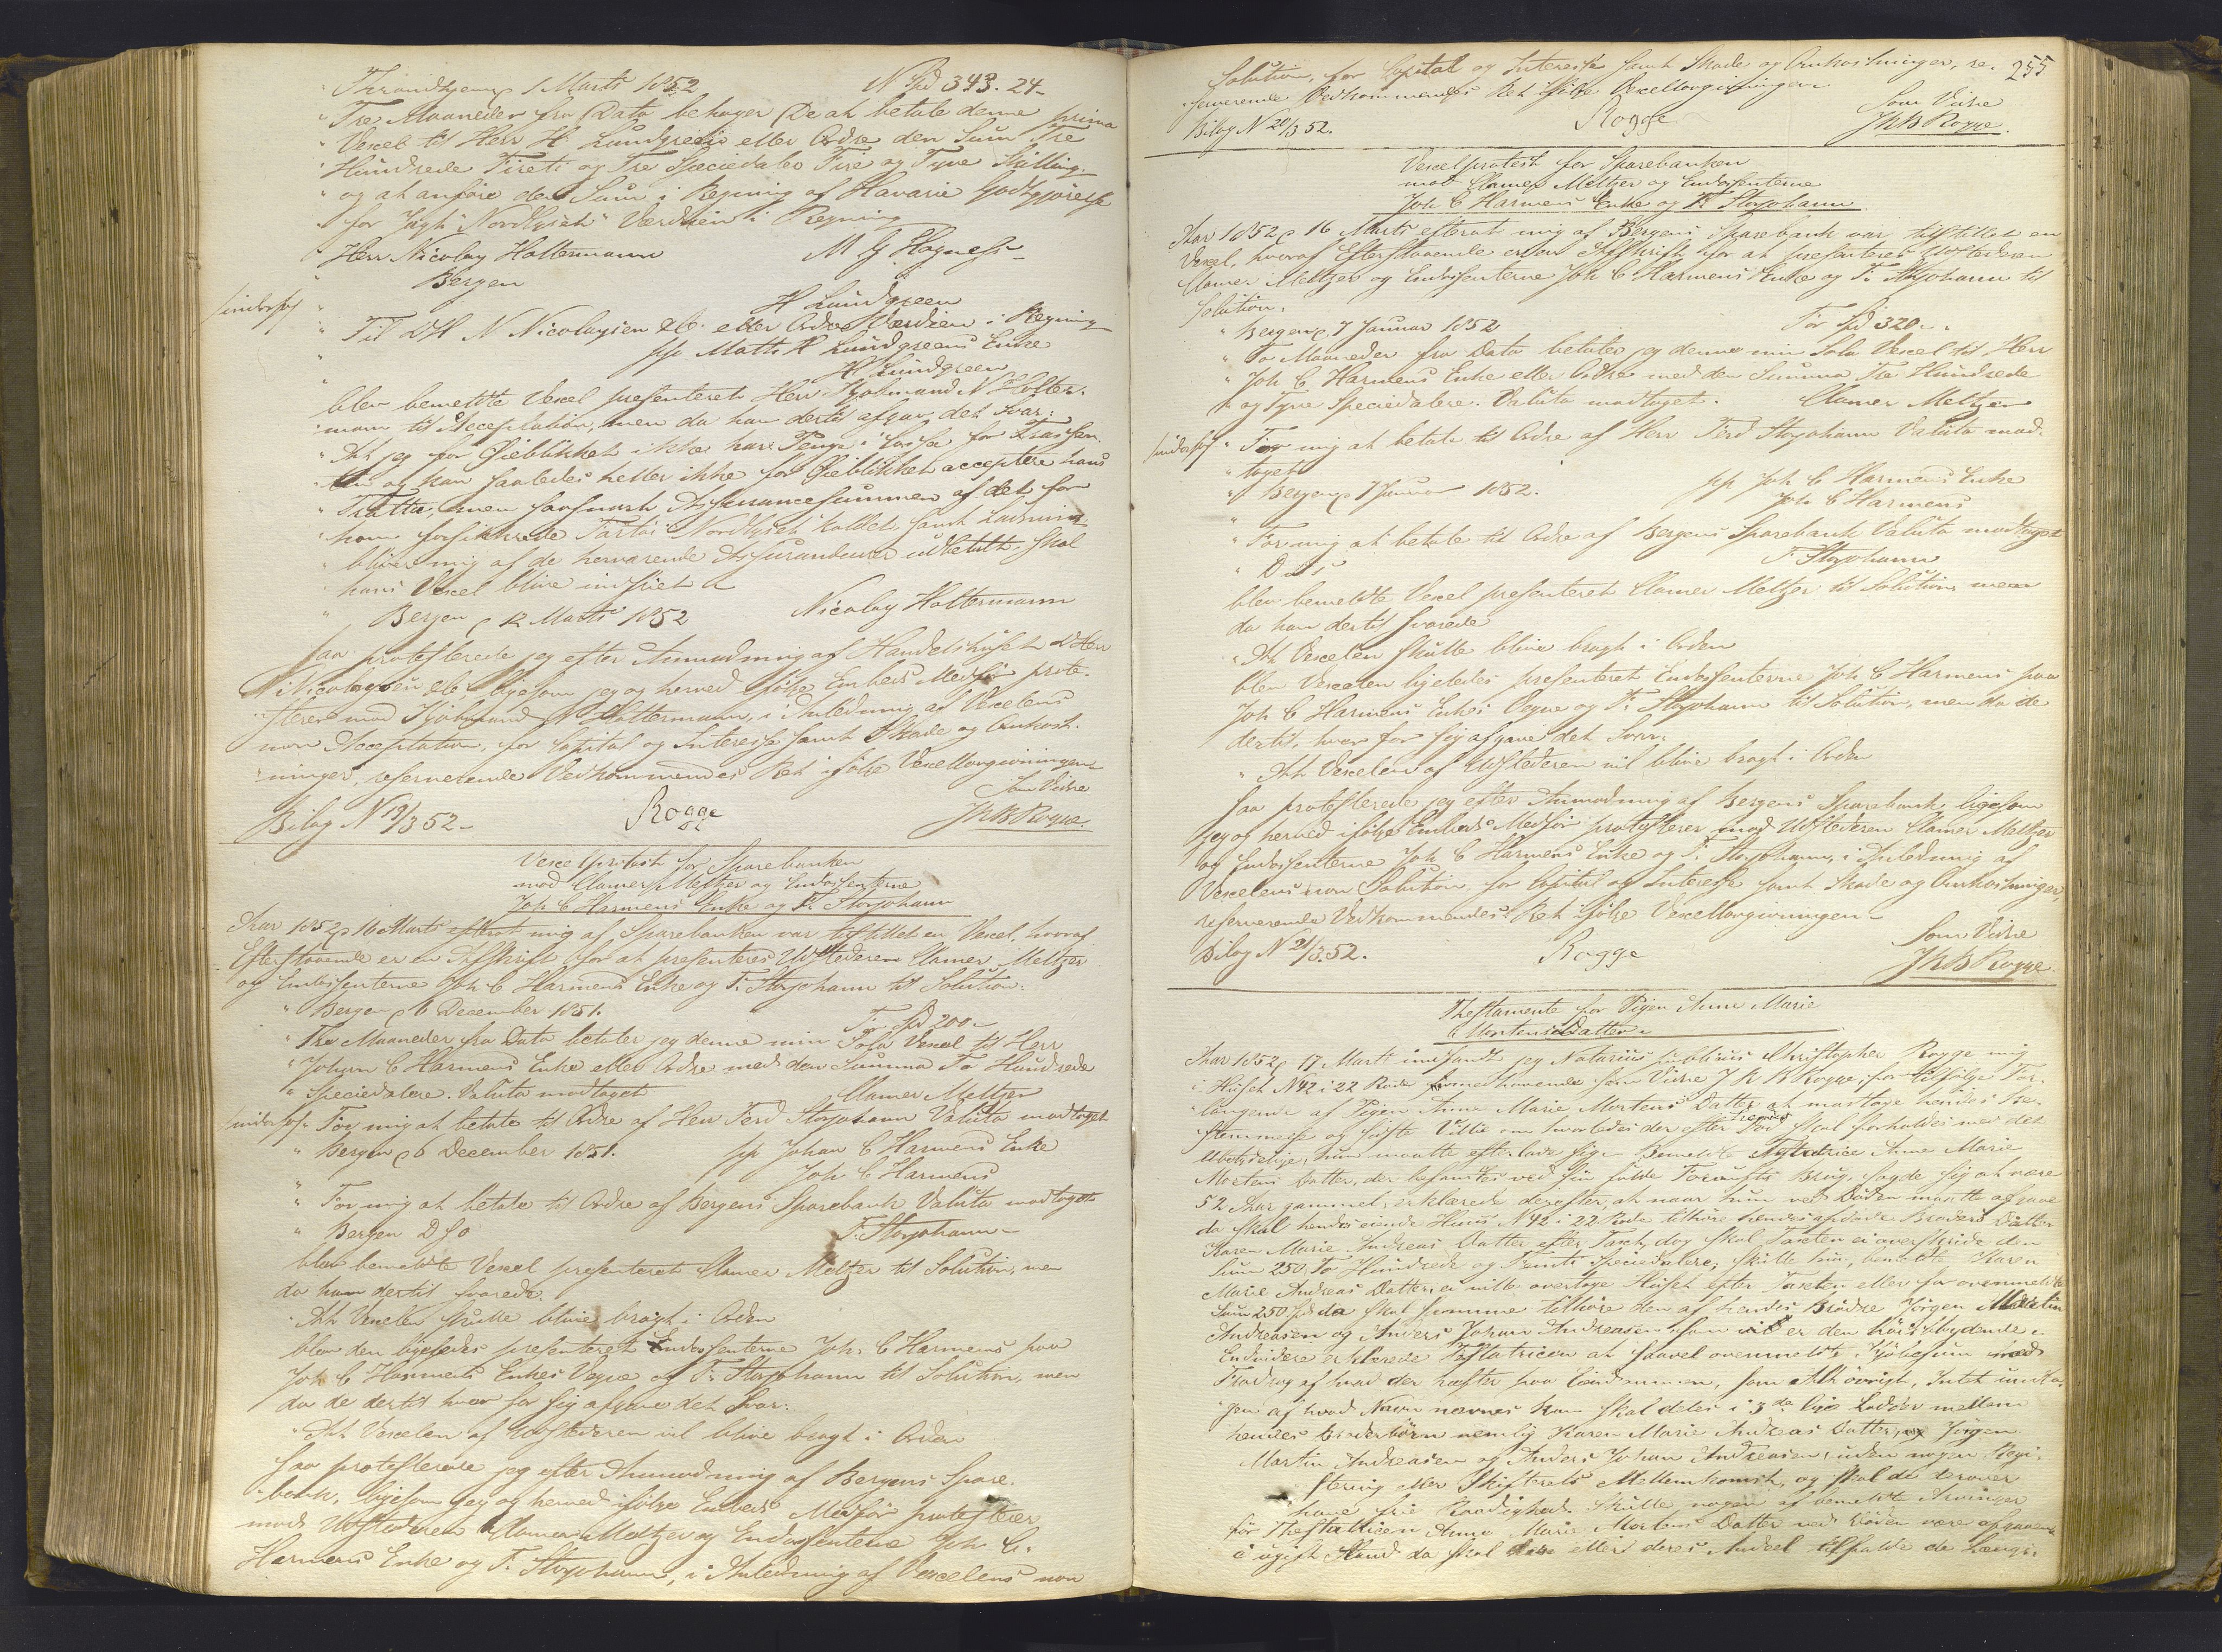 " Throndhjem p 1 Marts 1852 N Spd 343. 24-
" Tre Maaneder fra Dato behager De at betale denne prima
" Vexel til Herr H Lundgreen eller Ordre den Sum Tre
" Hundrede Fireti og Tre Speciedaler Fire og Tyve Skilling
" og at anföre den Sum i Regning af Havarie Godtgjörelse
" for Jagt "Nordlyset" Værdien i Regning
" Herr Nicolay Holtermann M G Hagness-
" Bergen
Indorsos " H Lundgreen
" Til DH N Nicolaysen & Co. eller Ordre Værdien i Regning
" pp Matts H Lundgreens Enke
" H Lundgreen
blev bemeldte Vexel presenteret Herr Kjøbmand N Holter-
mann til Acceptation, men da han dertil afgav det Svar:
" At jeg for Øieblikket ikke har Penge i Cassa for Trassen-
" ten og kan saaledes heller ikke for Øieblikket acceptere hans
" Tratte, men saasnart Assurancesummen af det for
" ham forsikkrede Fartöi "Nordlyset" kaldet samt Ladning
" bliver mig af de herværende Assurandeurer udbetalt, skal
" hans Vexel blive indfriet
" Bergen p 12 Marts 1852 Nicolay Holtermann
saa protesterede jeg efter Anmodning af Handelshuset DHerr
N Nicolaysen & Co, ligesom jeg og herved ifölge Embeds Medför prote-
sterer mod Kjøbmand N Holtermann, i Anledning af Vexelens
non Acceptation, for Capital og Interesse samt Skade og Omkost-
ninger, reserverende Vedkommendes Ret ifölge Vexellovgivningen
Som Vidne
Bilag N 19/3 52- Rogge JKBRogge.
Vexelprotest for Sparebanken
mod Clamer Meltzer og Endossenterne
Joh C Harmens Enke og F. Storjohann
Aar 1852 p 16 Marts efterat mig af Sparebanken var tilstillet en Vexel, hvoraf
Efterstaaende er en Afskrift for at presenteres Udstederen Clamer Meltzer
og Endossenterne Joh C Harmens Enke og F. Storjohann til Solution:
" Bergen p 6 December 1851. For Spd 200-
" Tre Maaneder fra Dato betaler jeg denne min Sola Vexel til Herr
" Johan C Harmens Enke eller Ordre med den Summa To Hundrede
" Speciedalere. Valuta modtaget Clamer Meltzer
Indorsos " For mig at betale til Ordre af Herr Ferd Storjohann Valuta modtaget
" Bergen p 6 December 1851. pp Johan C Harmens Enke
" Joh C Harmens
" For mig at betale til Ordre af Bergens Sparebank Valuta modtaget
" Bergen D s o F. Storjohann-
blev bemeldte Vexel presenteret Clamer Meltzer til Solution, men
da han dertil svarede:
" At Vexelen skulle blive bragt i Orden
blev den ligeledes presenteret Endossenterne Joh: C Harmens paa
Joh C Harmens Enkes Vegne og F. Storjohann til Solution, men
da de dertil hver for sig afgave det Svar:
" At Vexelen af Udstederen vil blive bragt i Orden
saa protesterede jeg efter Anmodning af Bergens Spare-
bank, ligesom jeg og herved ifölge Embeds Medför protesterer
mod Udstederen Clamer Meltzer og Endossenterne Joh C.
Harmens Enke og F. Storjohann, i Anledning af Vexelens non
255
Solution, for Capital og Interesse samt Skade og Omkostninger, re-
serverende Vedkommendes Ret ifölge Vexellovgivningen
Som Vidne
Bilag N 20/3 52. Rogge JKBRogge.
Vexelprotest for Sparebanken
mod Clamer Meltzer og Endossenterne
Joh C Harmens Enke og F. Storjohann
Aar 1852 p 16 Marts efterat mig af Bergens Sparebank var tilstillet en
Vexel, hvoraf Efterstaaende er en Afskrift for at presenteres Udstederen
Clamer Meltzer og Endossenterne Joh C Harmens Enke og F. Storjohann til
Solution:
" Bergen p 7 Januar 1852 For Spd 320-.
" To Maaneder fra Dato betaler jeg denne min Sola Vexel til Herr
" Joh C. Harmens Enke eller Ordre med den Summa Tre Hundrede
" og Tyve Speciedalere. Valuta modtaget. Clamer Meltzer
Indorsos " For mig at betale til Ordre af Herr Ferd Storjohann Valuta mod-
" taget
" Bergen p 7 Januar 1852. pp Joh C Harmens Enke
" Joh C Harmens
" For mig at betale til Ordre af Bergens Sparebank Valuta modtaget
" D s F. Storjohann
blev bemeldte Vexel presenteret Clamer Meltzer til Solution, men
da han dertil svarede
" At Vexelen skulle blive bragt i Orden
blev Vexelen ligeledes presenteret Endossenterne Joh C Harmens paa
Joh C Harmens Enkes Vegne og F. Storjohann til Solution, men da de
dertil, hver for sig afgave det Svar:
" At Vexelen af Udstederen vil blive bragt i Orden
saa protesterede jeg efter Anmodning af Bergens Sparebank, ligesom
jeg og herved ifölge Embeds Medför protesterer mod Udstederen Clamer Meltzer
og Endossenterne Joh C Harmens Enke og F. Storjohann, i Anledning af
Vexelens non Solution for Capital og Interesse samt Skade og Omkostninger,
reserverende Vedkommendes Ret ifölge Vexellovgivningen-
Som Vidne
Bilag N 21/3. 52. Rogge JKBRogge.
Thestamente for Pigen Anne Marie
Mortens Datter.
Aar 1852 p 17 Marts indfandt jeg Notarius publicus Christopher Rogge mig
i Huset N 42 i 22 Rode medhavende som Vidne J K B Rogge, for ifölge For-
langende af Pigen Anne Marie Mortens Datter at modtage hendes Be-
stemmelse og sidste Villie om hvorledes der efter hendes Död skal forholdes med det
Ubetydelige, hun maatte efterlade sig- Bemeldte Testatrice Anne Marie
Mortens Datter, der befandtes ved sin fulde Fornufts Brug, sagde sig at være
52 Aar gammel, erklærede derefter, at naar hun ved Döden maatte afgaae
da skal hendes eiende Huus N 42 i 22 Rode tilhöre hendes afdöde Broders Datter
Karen Marie Andreas Datter efter Taxt, dog skal Taxten ei overskride den
Sum 250, To Hundrede og Femti Speciedalere; skulle hun, bemeldte Karen
Marie Andreas Datter, ei ville overtage Huset efter Taxten eller for ovenmeldte
Sum 250 Spd da skal samme tilhöre den af hendes Brödre Jörgen Martin
Andreasen og Anders Johan Andreasen som er den höistbydende-
Endvidere erklærede Testatricen at saavel ovenmeldte Kjöbesum med
Fradrag af hvad der hæfter paa Eiendommen, som Alt övrigt, Intet undta-
gen af hvad Navn nævnes kan skal deles i 3de lige Lodder mellem
hendes Broderbörn nemlig Karen Marie Andreas Datter, og Jörgen
Martin Andreasen og Anders Johan Andreasen, uden nogen Regi-
stering eller Skifterets Mellemkomst, og skal de derover
have frie Raadighed. Skulle nogen af bemeldte Arvinger
för Thestatricen Anne Marie Mortens Datter ved Döden være afgaaen
i ugift Stand da skal eller deres Andeel tilfalde de Længst-